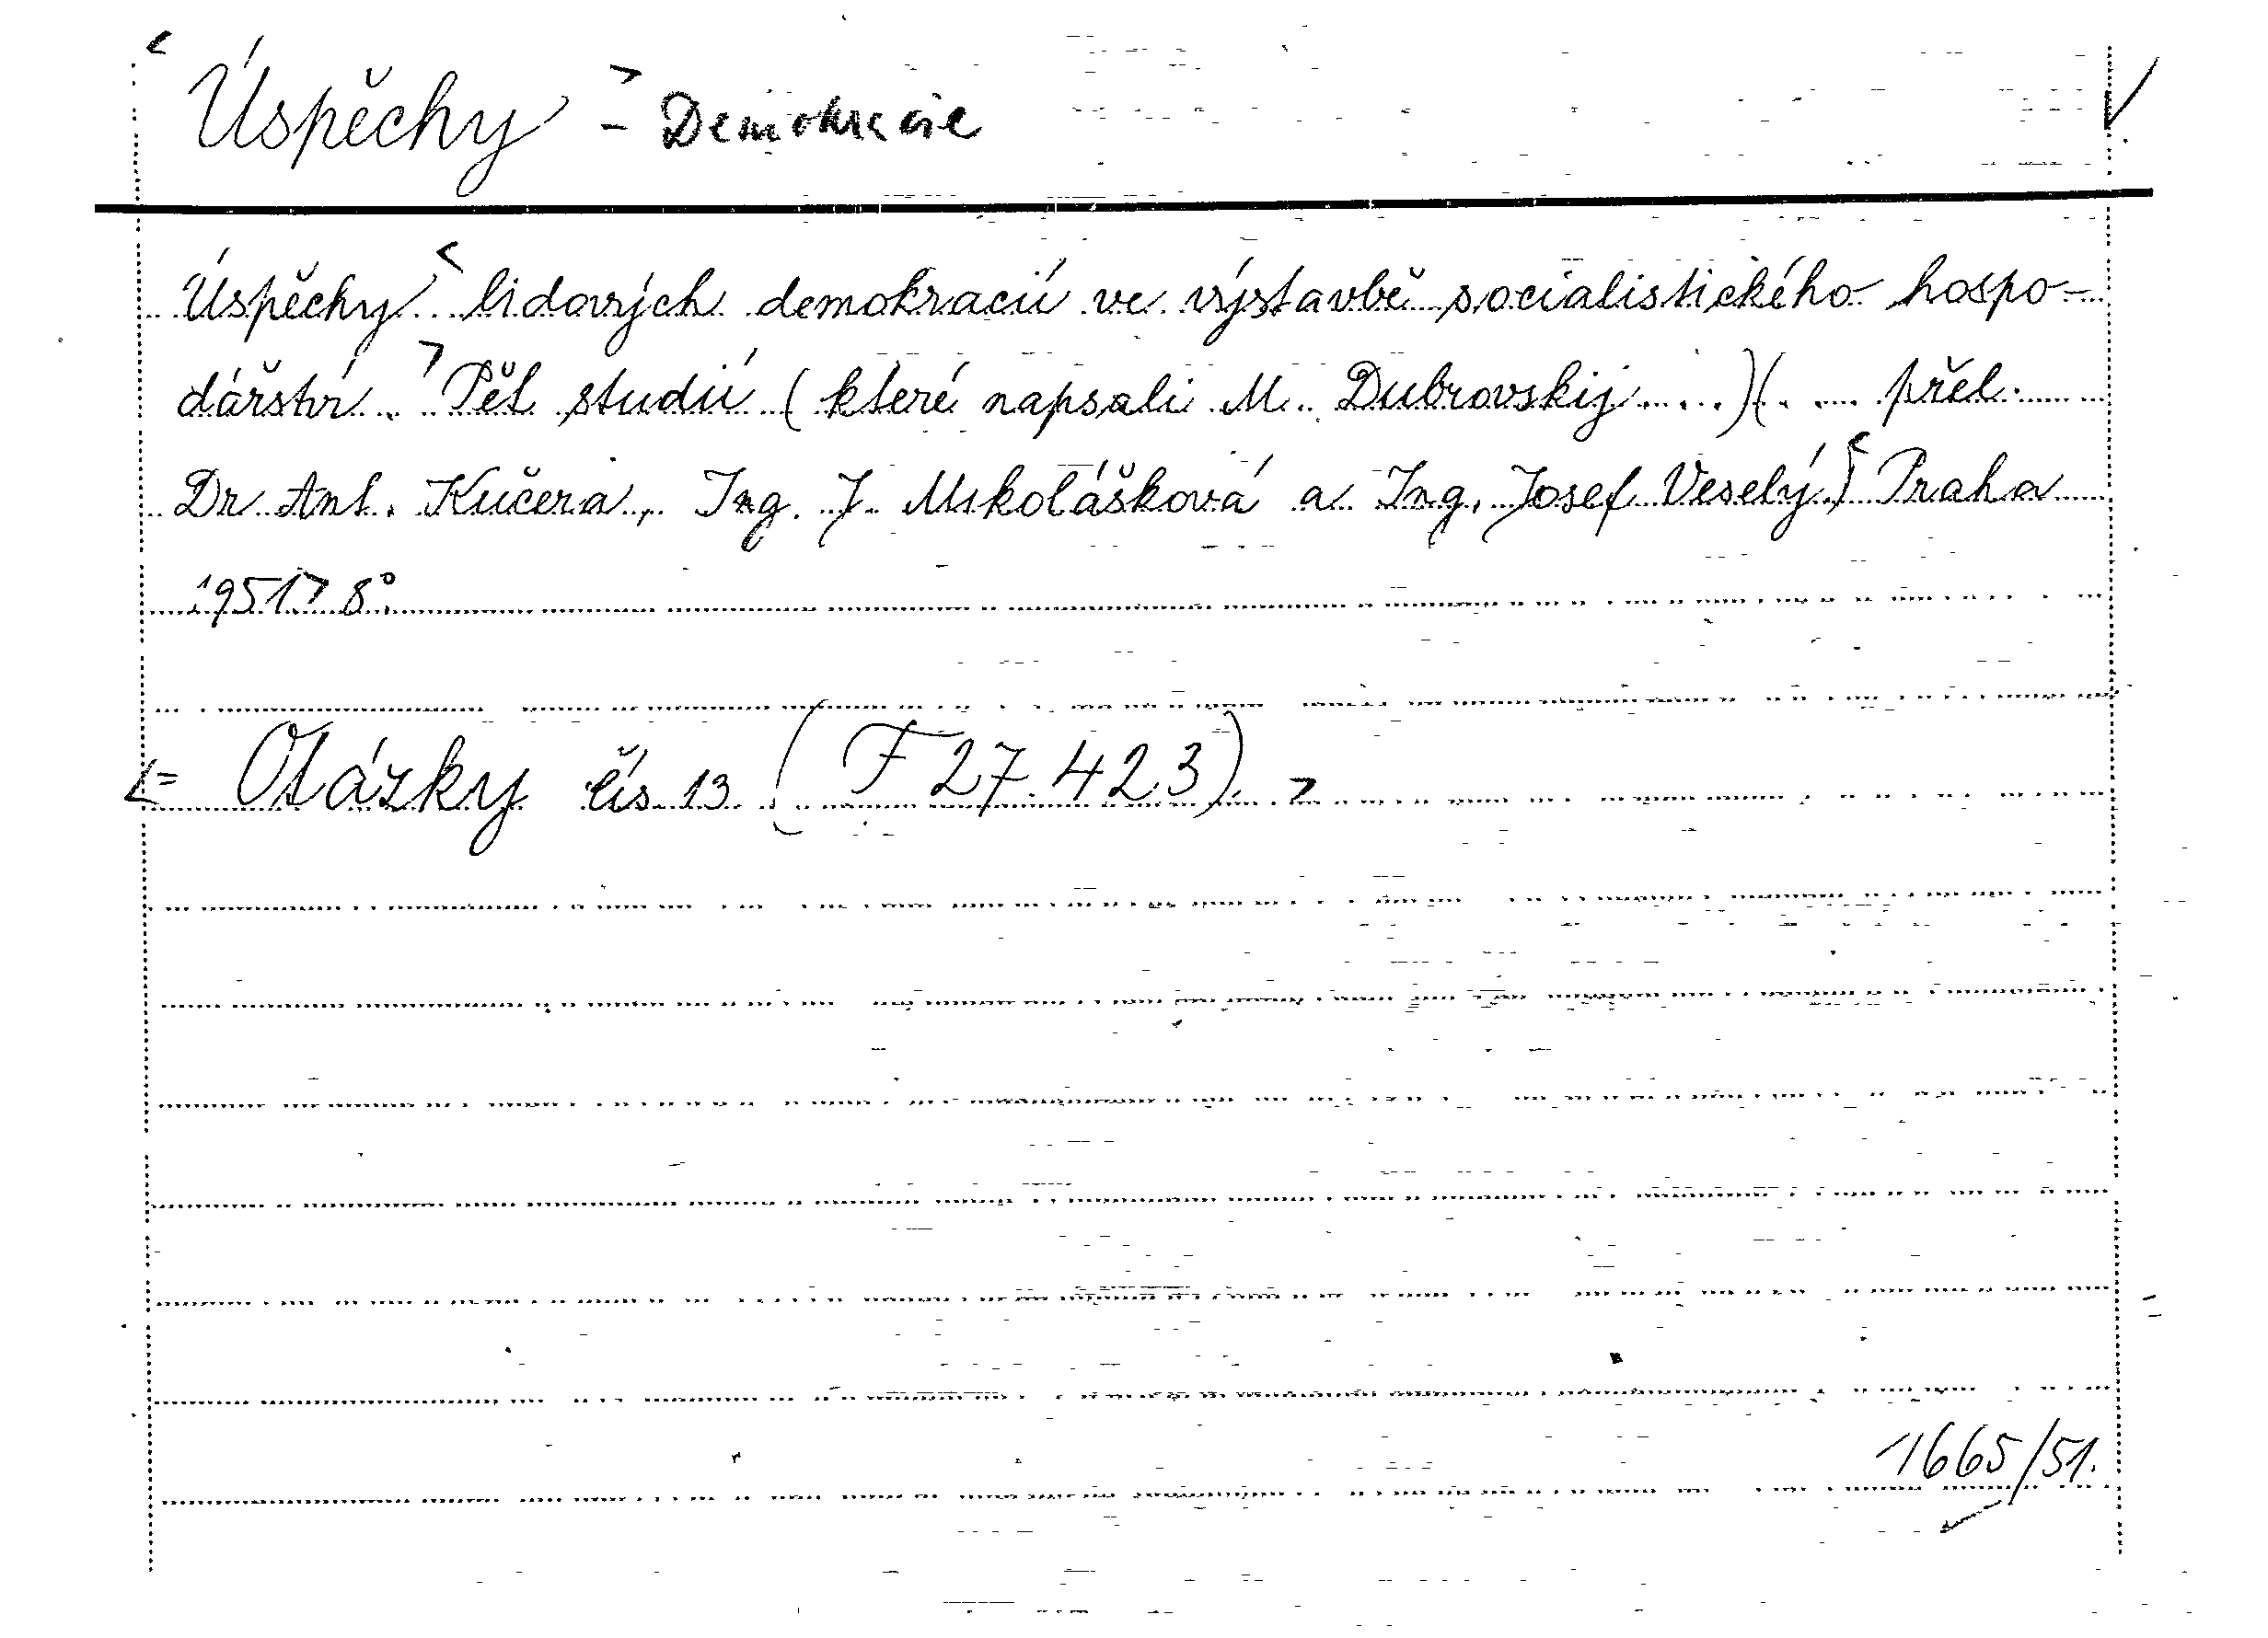 < Úspěchy > - Demokracie
Úspěchy < lidových demokracií ve výstavbě socialistického hospo-
dářství. > Pět studií (které napsali M. Dubrovskij ...)(... přel.
Dr Ant. Kučera, Ing. J. Mikolášková a Ing. Josef Veselý) < Praha
1951 > 8°.
<= Otázky čís 13 (F 27.423). >
1665/51.